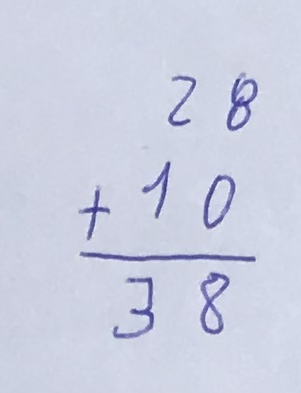 28
+ 10
38